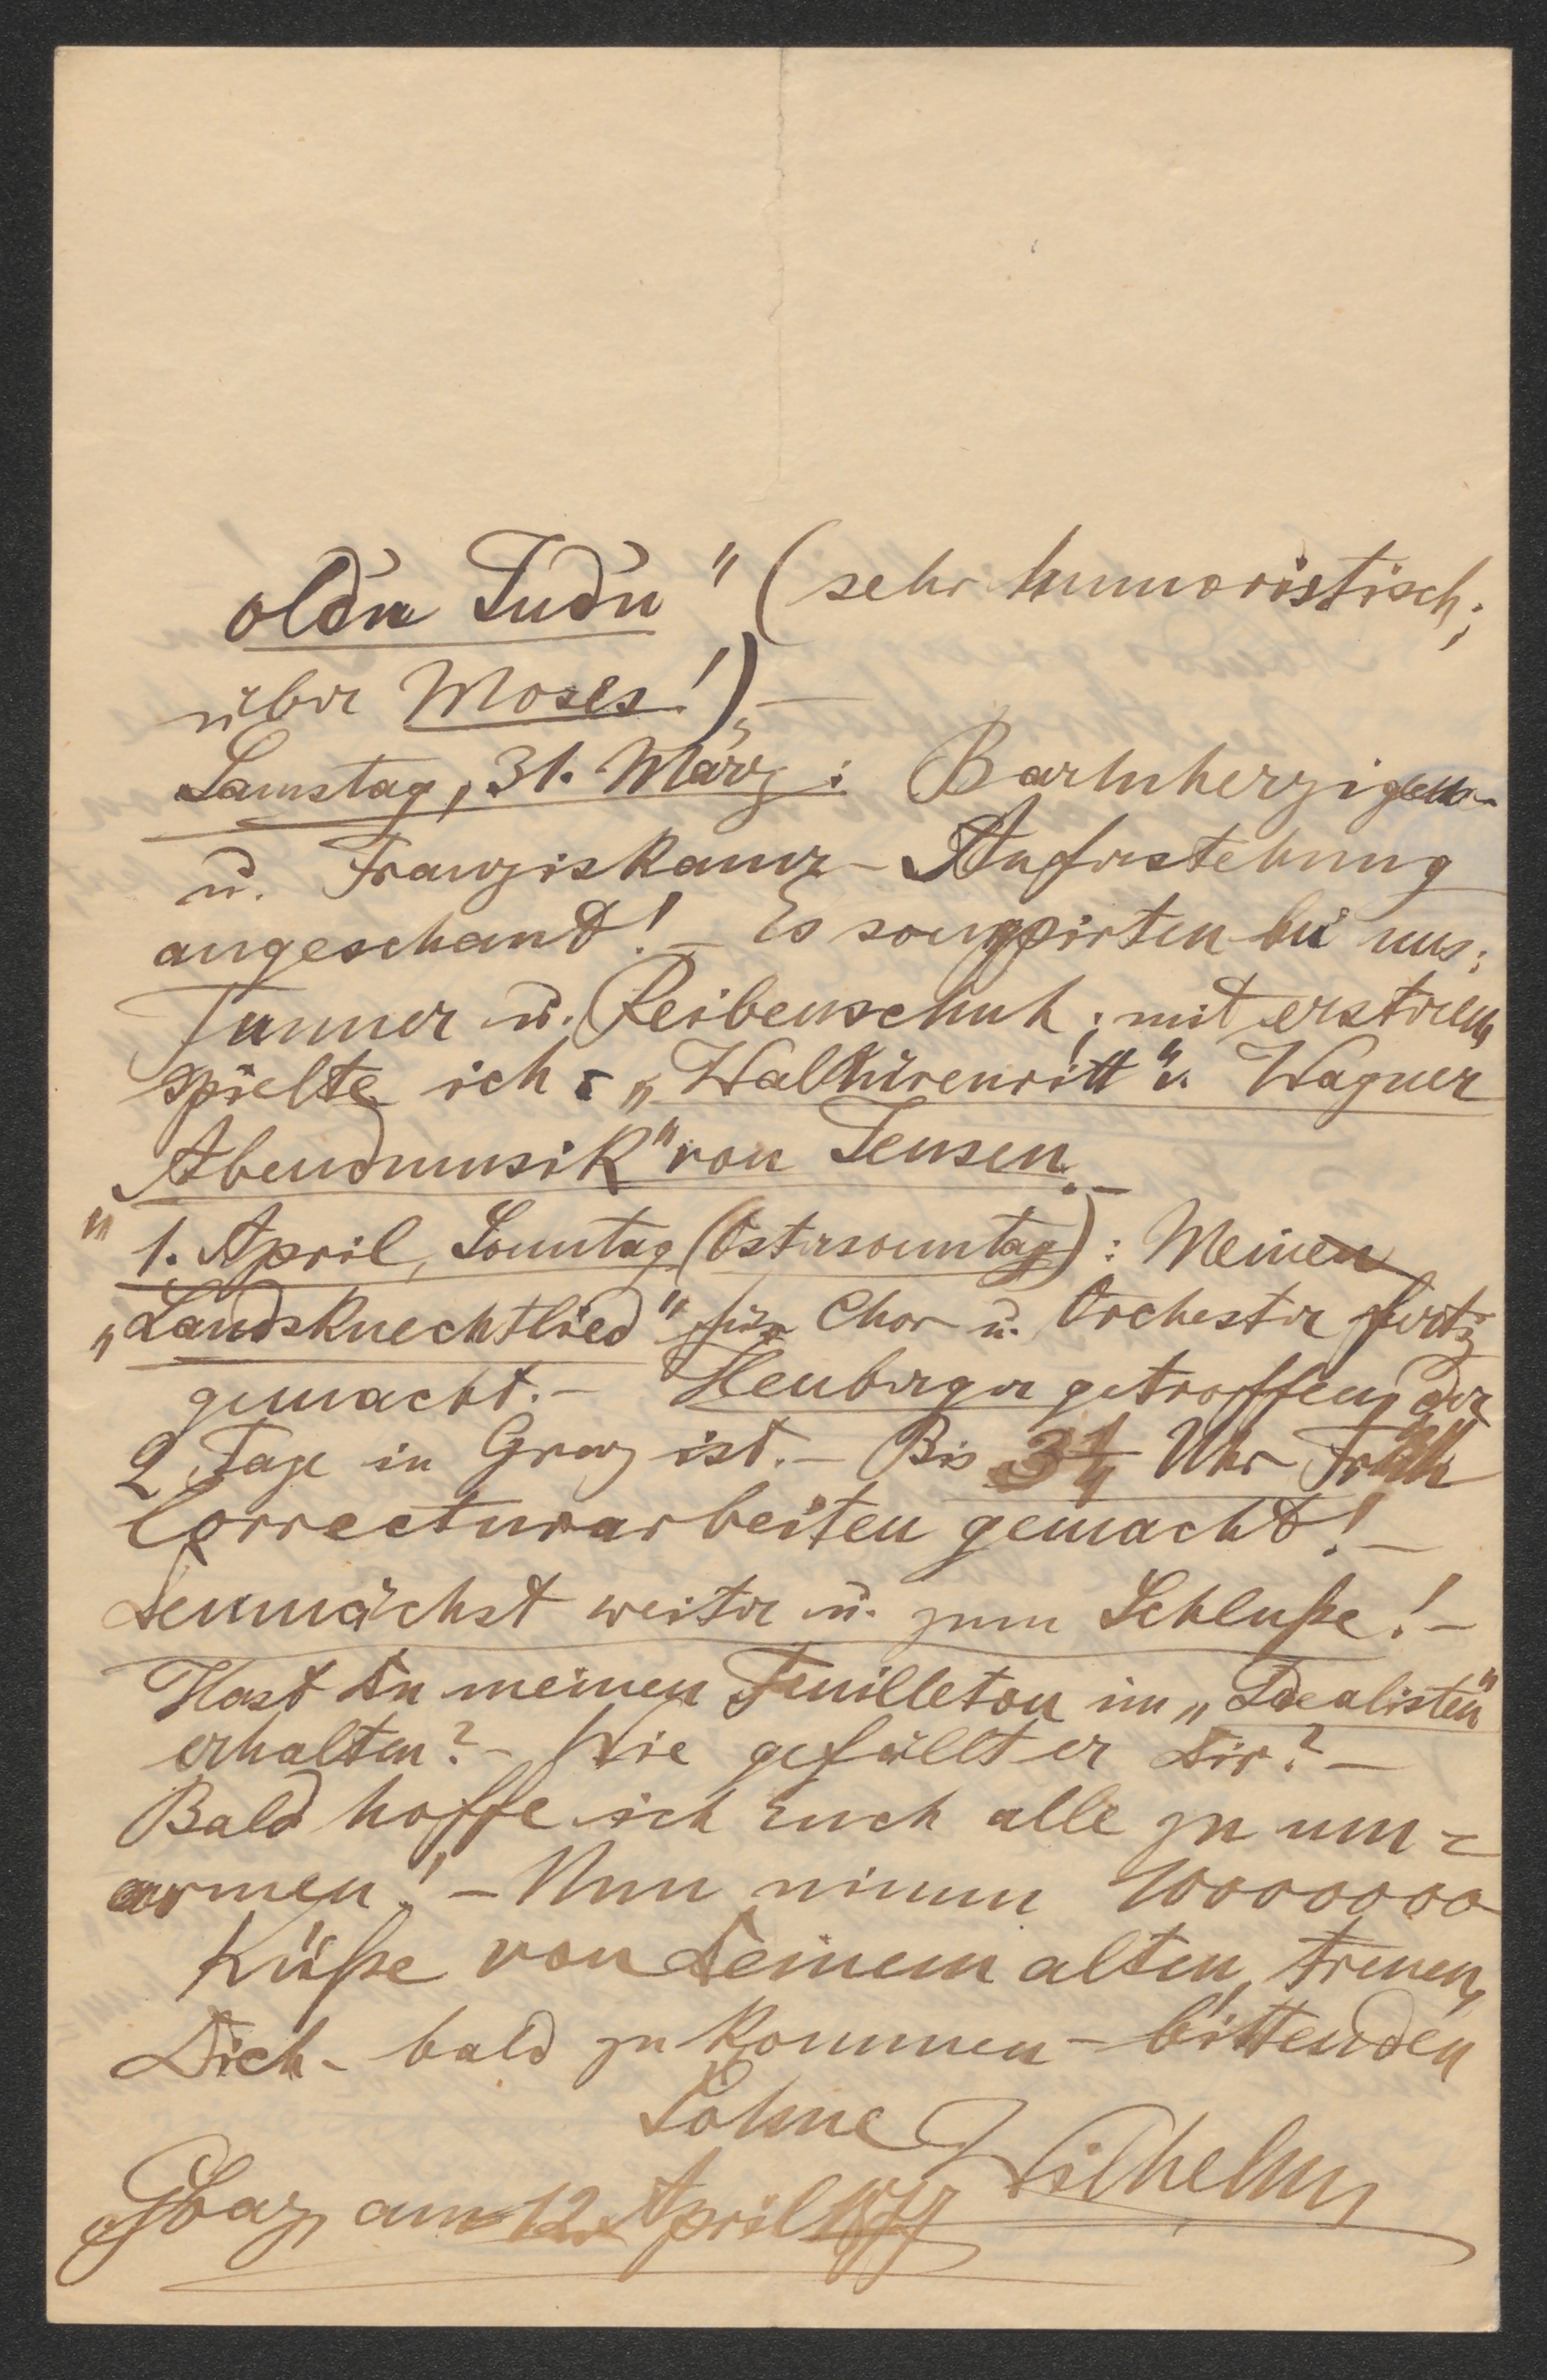 oldn Judn" (sehr humoristisch;
über Moses!).—
Samstag, 31. März: Barmherzigen-
u. Franziskaner-Auferstehung
angeschaut! — Es soupirten bei uns:
Tunner u. Reibenschuh; mit ersterem
spielte ich: „Walkürenritt" v. Wagner
„Abendmusik" von Jensen.—
1. April, Sonntag (Ostersonntag): Meinen
„Landsknechtlied" für Chor u. Orchester fertig
gemacht.— Heuberger getroffen, der
2 Tage in Graz ist.— Bis 3¼ Uhr Früh
Correcturarbeiten gemacht!—
Demnächst weiter u. zum Schluße!—
Hast Du meinen Feuilleton im „Idealisten"
erhalten?— Wie gefällt er Dir?—
Bald hoffe ich Euch alle zu um=
armen!— Nun nimm 10000000
Küße von Deinem alten, treuen,
Dich - bald zu kommen - bittenden
Sohne Wilhelm
Graz, am 12. April 1877